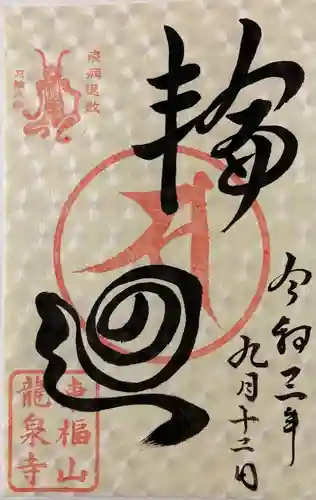 輪廻
令和三年
九月十二日
疫病退散
東福山
龍泉寺